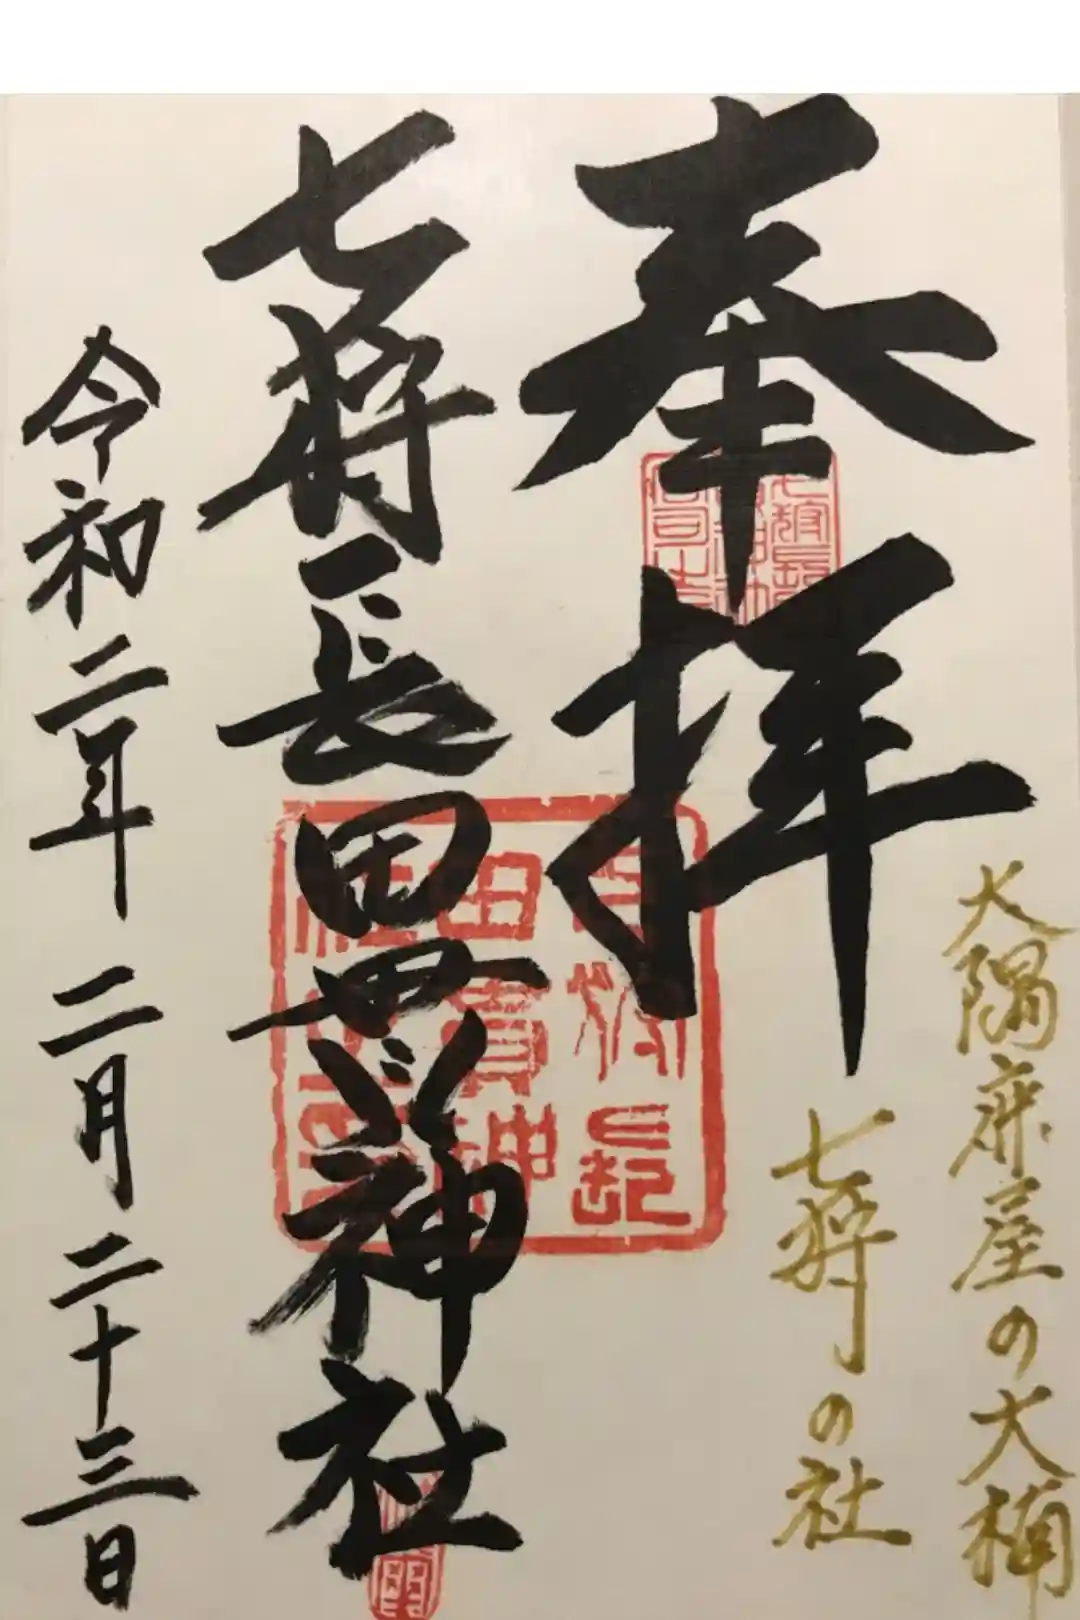 奉拝
大隅鹿屋の大楠
七狩の社
七狩長田貫神社
令和二年 二月 二十三日
七狩長
田貫神
社之印